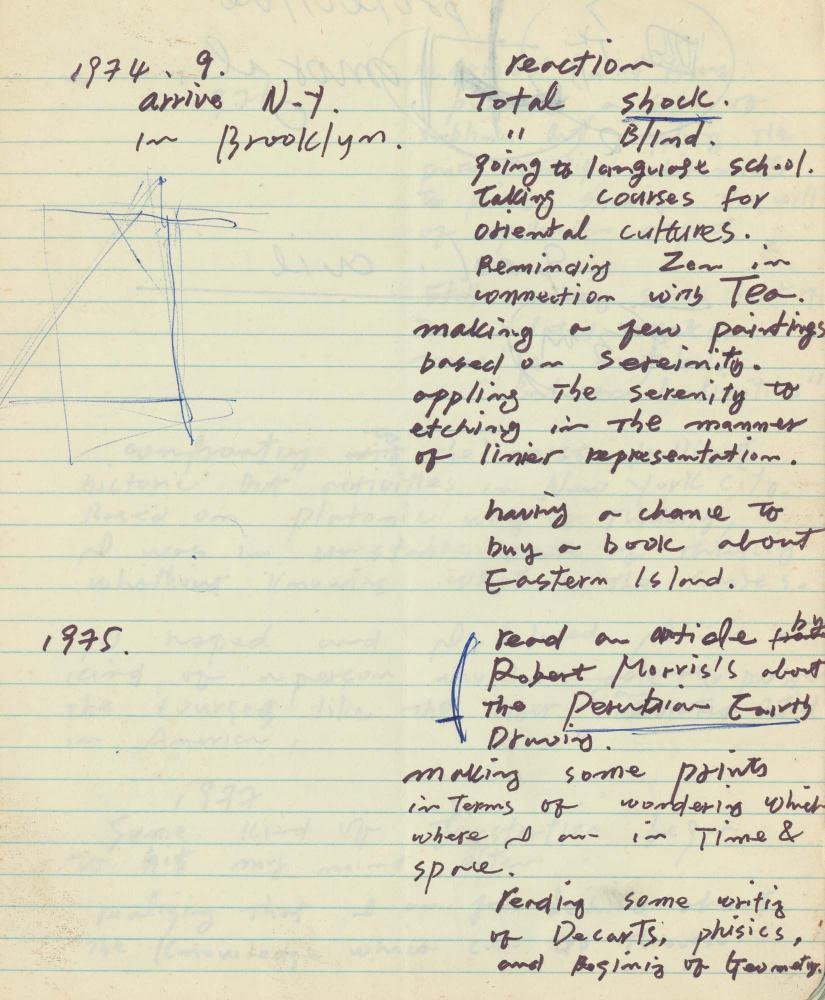 1974. 9.
arrive N-Y.
in Brooklyn.
reaction
Total shock.
" Blind.
going to language school.
Taking courses for
oriental cultures.
Reminding Zen in
connection with Tea.
making a few paintings
based on sereinity.
appling The serenity to
etching in The manner
of linier representation.
having a chance to
buy a book about
Eastern Island.
1975.
read an article by
Robert Morris's about
the Perubian Earth
Drawing.
making some prints
in Terms of wondering which
where I am in Time &
space.
reading some writig
of Decarts, phisics,
and Beginig of Geometry.